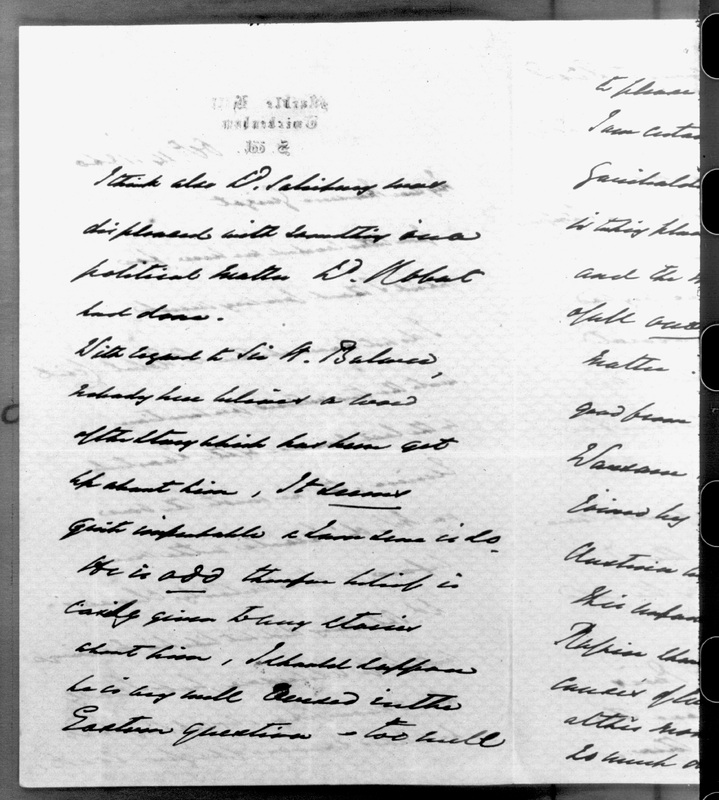 I think also Ld. Salisbury was
displeased with something in a
political matter Ld. Robert
had done.
With regard to Sir H. Bulwer,
nobody here believes a word
of the story which has been got
up about him, It seems
quite improbable & I am sure is so.
He is odd therefore belief is
easily given to any stories
about him, I should suppose
he is very well versed in the
Eastern question - too well
to please
I am certain
Garibaldi
is taking place
and the
of all our
matter.
good from
Warsaw
Austria
this
causes of
at this
so much